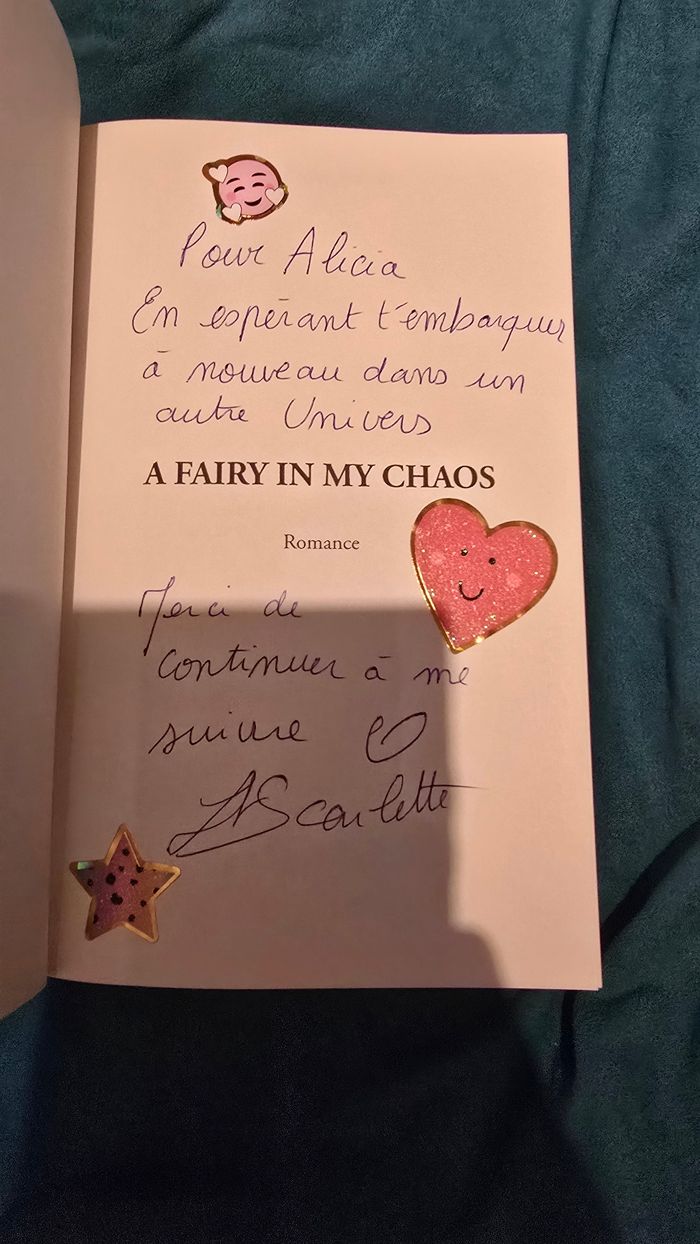 Pour Alicia
En espérant t'embarquer
à nouveau dans un
autre Univers
A FAIRY IN MY CHAOS
Romance
Merci de
continuer à me
suivre
Scarlette